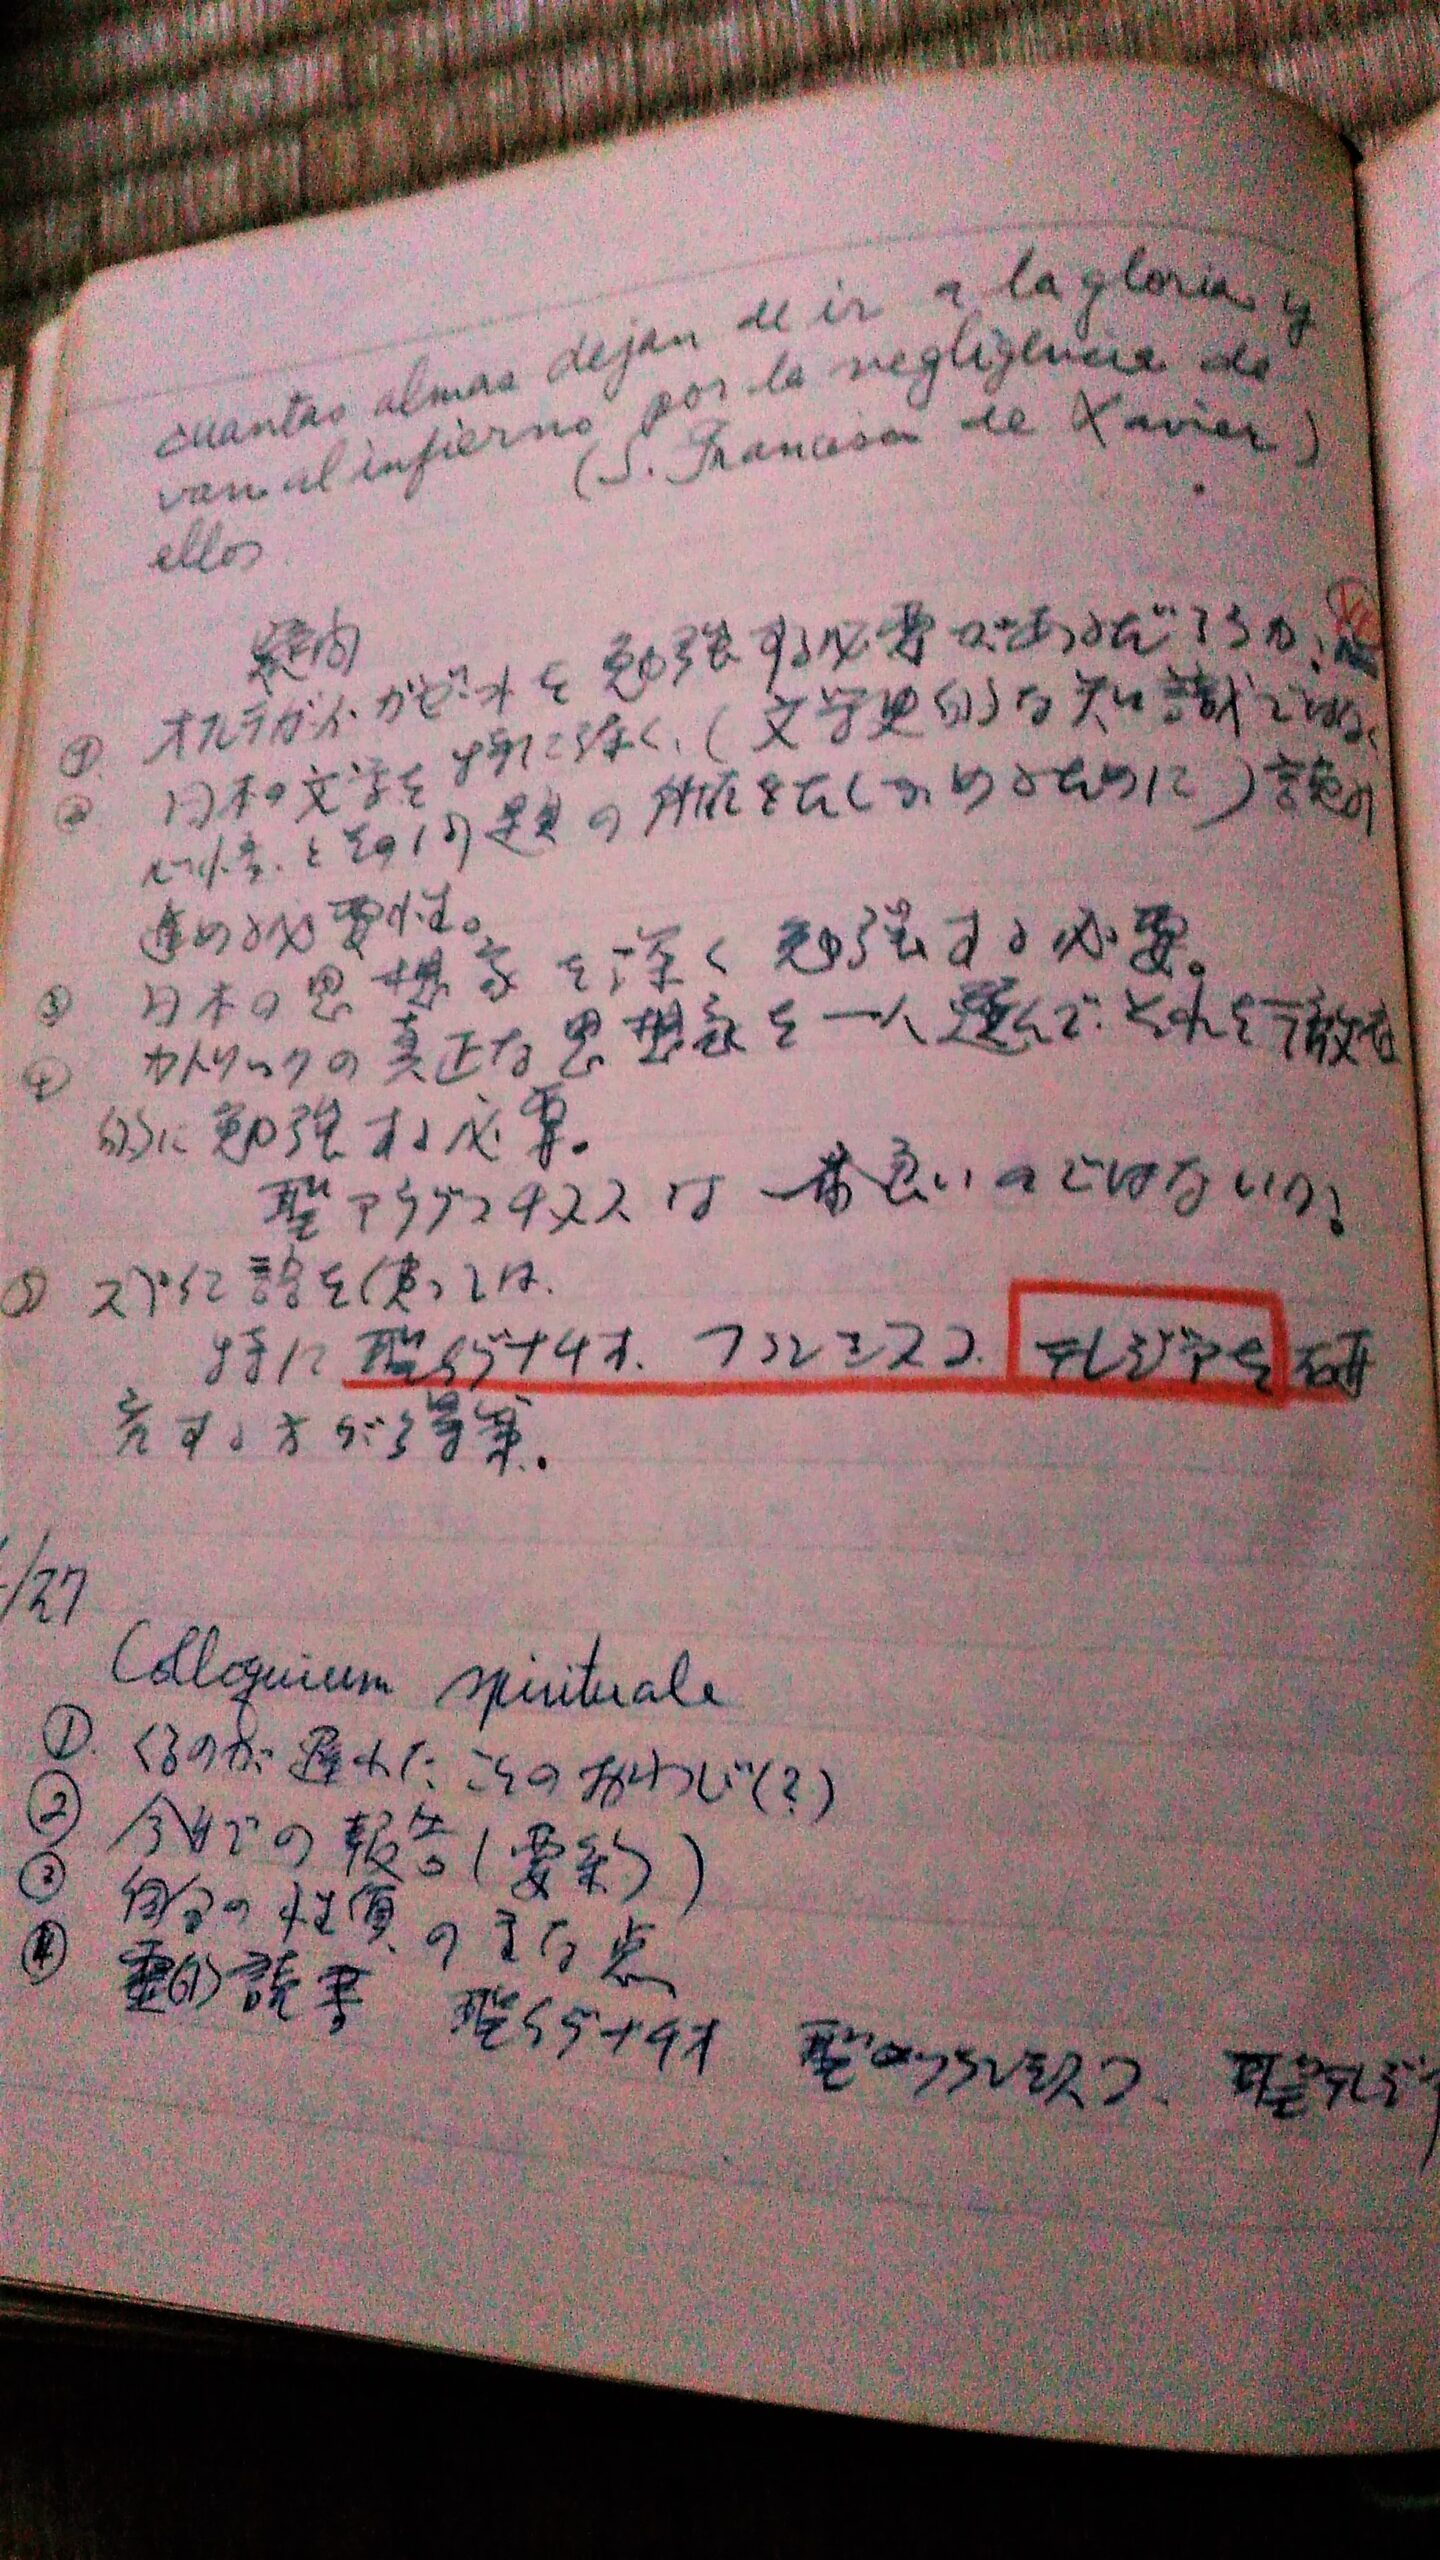 cuantas almas dejan de ir a la gloria y
van al infierno por la negligencia de
ellos. (S. Francisco de Xavier)
疑問
① オルテガ・イ・ガゼットを勉強する必要があるだろうか?
② 日本の文学を特に深く、(文学史的な知識ではなく、
心情とその問題の所在をたしかめるために)読み
進める必要性。
③ 日本の思想家を深く勉強する必要。
④ カトリックの真正な思想家を一人選んで、それを徹底
的に勉強する必要。
聖アウグスチヌスは一番良いのではないか?
⑤ スペイン語を使っては、
特に聖イグナチオ、フランシスコ、テレジアを研
究する方が得策。
/27
Colloquium spirituale
①. くるのが遅れたことのおわび(?)
② 今までの報告(要約)
③ 自分の性質の主な点
④ 霊的読書 聖イグナチオ 聖フランシスコ、聖テレジア